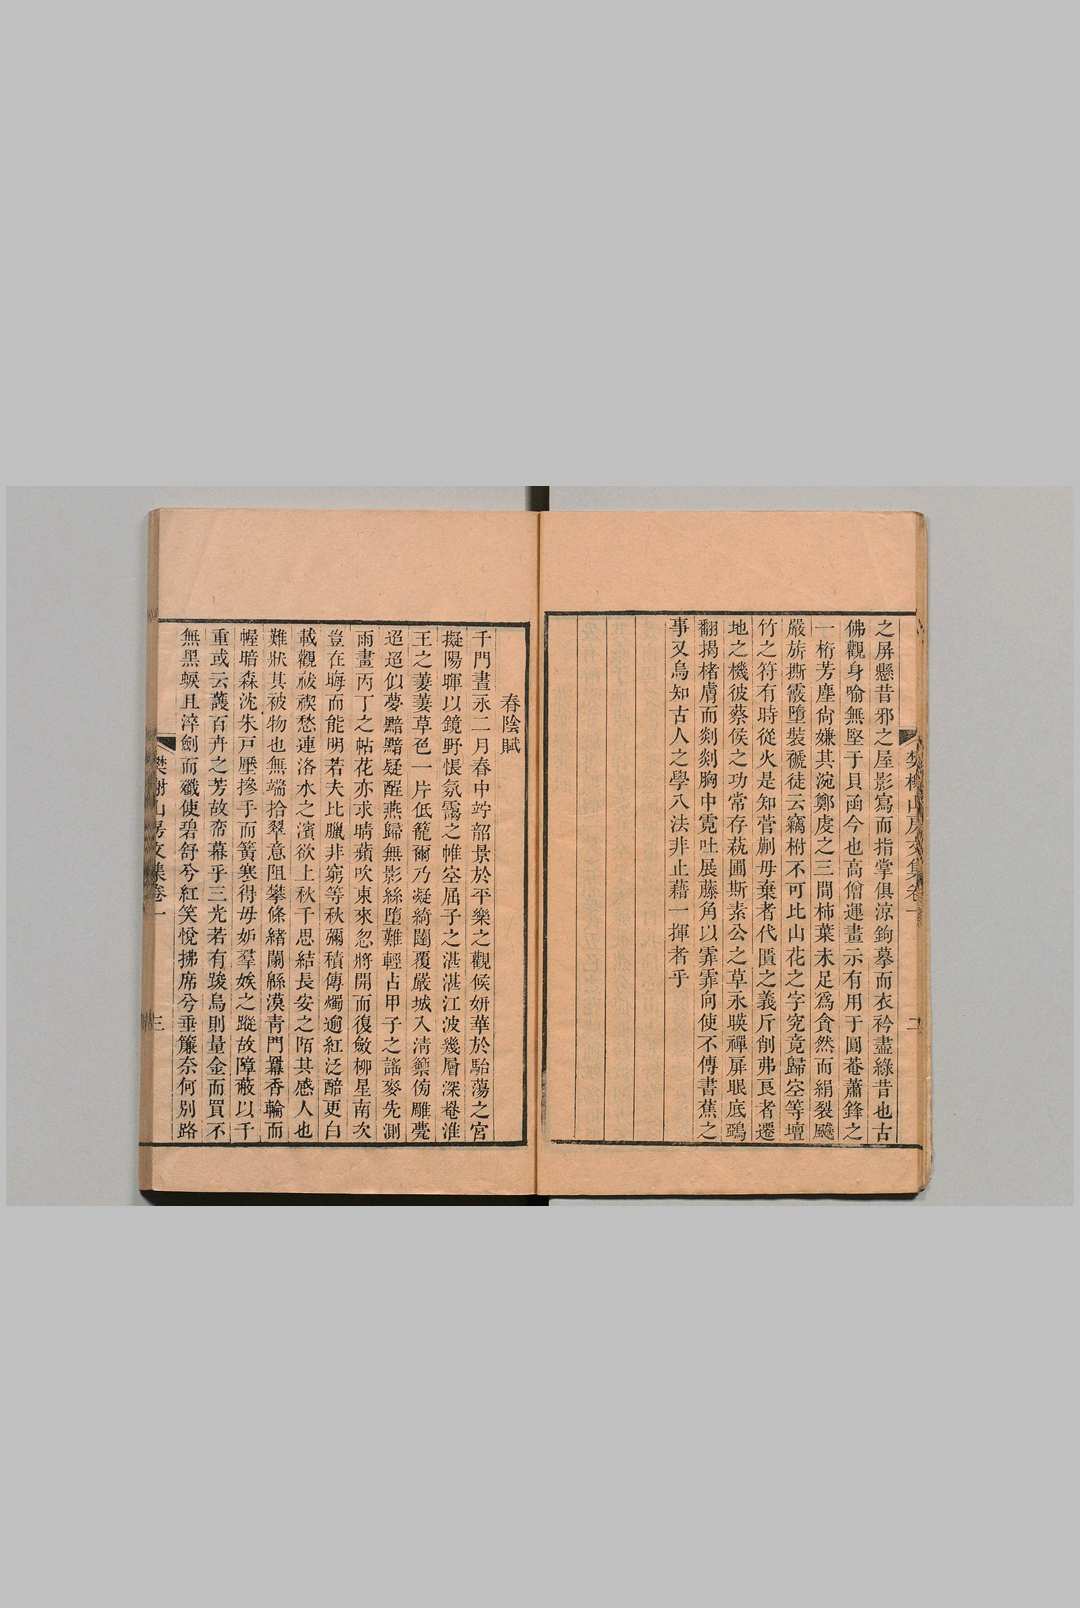 之屏懸昔邪之屋影寫而指掌俱涼鉤摹而衣衿盡綠昔也古
佛觀身喻無堅于貝函今也高僧運畫示有用于圓菴蕭鋒之
一桁芳塵尙嫌其涴鄭虔之三間柿葉未足爲貪然而絹裂飈
嚴旂撕霞墮裝褫徒云竊柎不可比山花之字究竟歸空等壇
竹之符有時從火是知菅蒯毋棄者代匱之義斤削弗艮者遷
地之機彼蔡侯之功常存萟圃斯素公之草永暎禪屏眼底鵶
翻揭楮膚而剡剡胸中霓吐展藤角以霏霏向使不傳書蕉之
事又烏知古人之學八法非止藉一揮者乎
樊榭山房文集卷一
二
春陰賦
千門晝永二月春中竚韶景於平樂之觀候妍華於駘蕩之宮
擬陽暉以鏡野悵氛靄之帷空屈子之湛湛江波幾層深巷淮
王之萋萋草色一片低籠爾乃凝綺閣覆嚴城入淸籞傍雕甍
迢迢似夢黯黯疑醒燕歸無影絲墮難輕占甲子之謠麥先測
雨畫丙丁之帖花亦求晴蘋吹東來忽將開而復斂柳星南次
豈在晦而能明若夫比臘非窮等秋彌積傳燭逾紅泛醅更白
載觀祓禊愁連洛水之濱欲上秋千思結長安之陌其感人也
難狀其被物也無端拾翠意阻攀條緖闌緜漠靑門羃香輪而
幄暗森沈朱戸壓摻手而簧寒得毋妒羣娭之蹤故障蔽以千
重或云護百卉之芳故帟幕乎三光若有踆烏則量金而買不
無黑蜧且淬劍而殲使碧舒兮紅笑悅拂席兮垂簾奈何別路
樊榭山房文集卷一
三